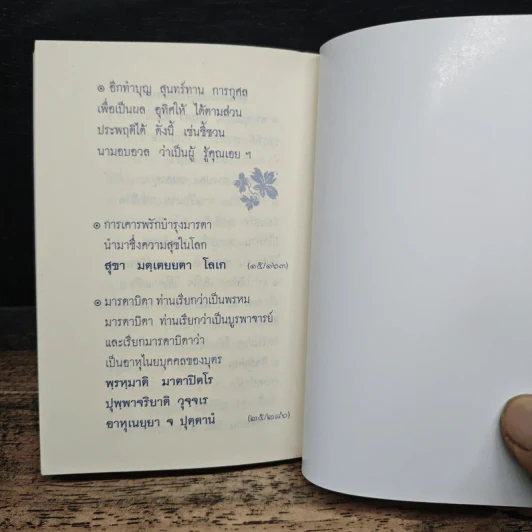 ๏ อีกทำบุญ สุนทร์ทาน การกุศล
เพื่อเป็นผล อุทิศให้ ได้ตามส่วน
ประพฤติได้ ดังนี้ เช่นชี้ชวน
นามอบอวล ว่าเป็นผู้ รู้คุณเอย ฯ
๏ การเคารพรักบำรุงมารดา
นำมาซึ่งความสุขในโลก
สุขา มตฺเตยฺยตา โลเก (๒๕/๖๓)
๏ มารดาบิดา ท่านเรียกว่าเป็นพรหม
มารดาบิดา ท่านเรียกว่าเป็นบูรพาจารย์
และเรียกมารดาบิดาว่า
เป็นอาหุไนยบุคคลของบุตร
พฺรหฺมาติ มาตาปิตโร
ปุพฺพาจริยาติ วุจฺจเร
อาหุเนยฺยา จ ปุตฺตานํ (๒๕/๒๘๖)